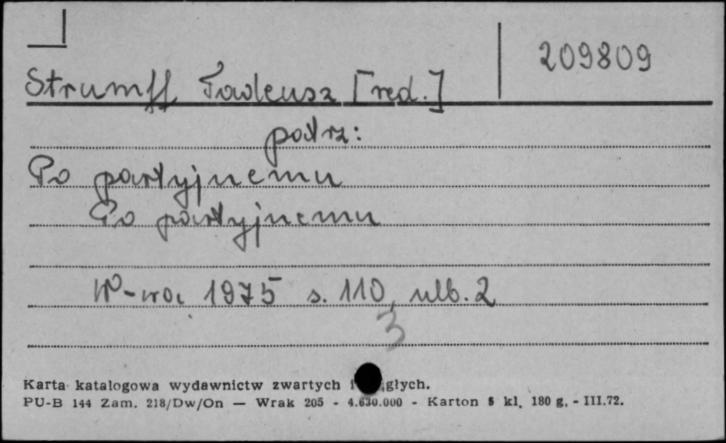 209809
Strumff Tadeusz [red.]
patrz:
Po partyjnemu
Po partyjnemu
W-wa 1975 s. 110, nlb. 2
3
Karta katalogowa wydawnictw zwartych i głych.
PU-B 144 Zam. 218/Dw/On — Wrak 205 - 4.630.000 - Karton 5 kl. 180 g. - III.72.